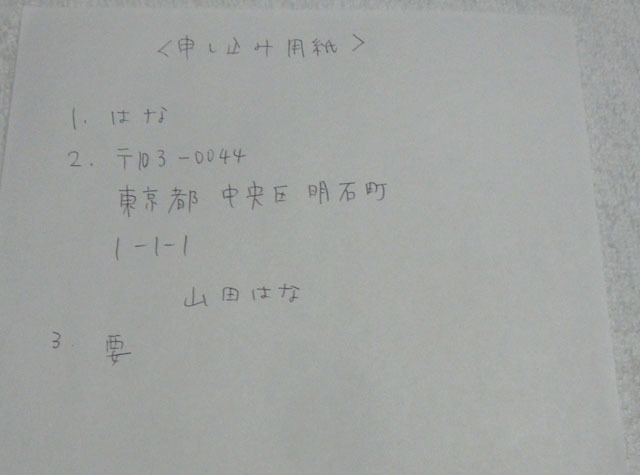 ＜申し込み用紙＞
1. はな
2. 〒103-0044
東京都 中央区 明石町
1-1-1
山田はな
3. 要